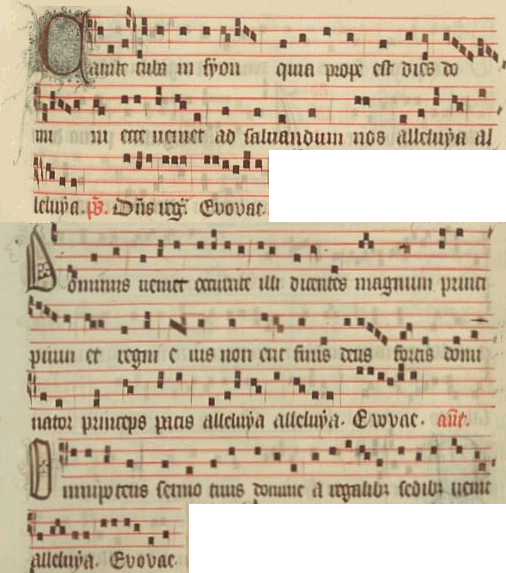 Canite tuba in syon quia prope est dies do
mi ni ecce ueniet ad saluandum nos alleluya al
leluya. ps. Dns reg. Evovae.
Dominus ueniet occurrite illi dicentes magnum princi
pium et regni e ius non erit finis deus fortis domi
nator princeps pacis alleluya alleluya. Evovae. ant.
Omnipotens sermo tuus domine a regalibus sedibus ueniet
alleluya. Evovae.